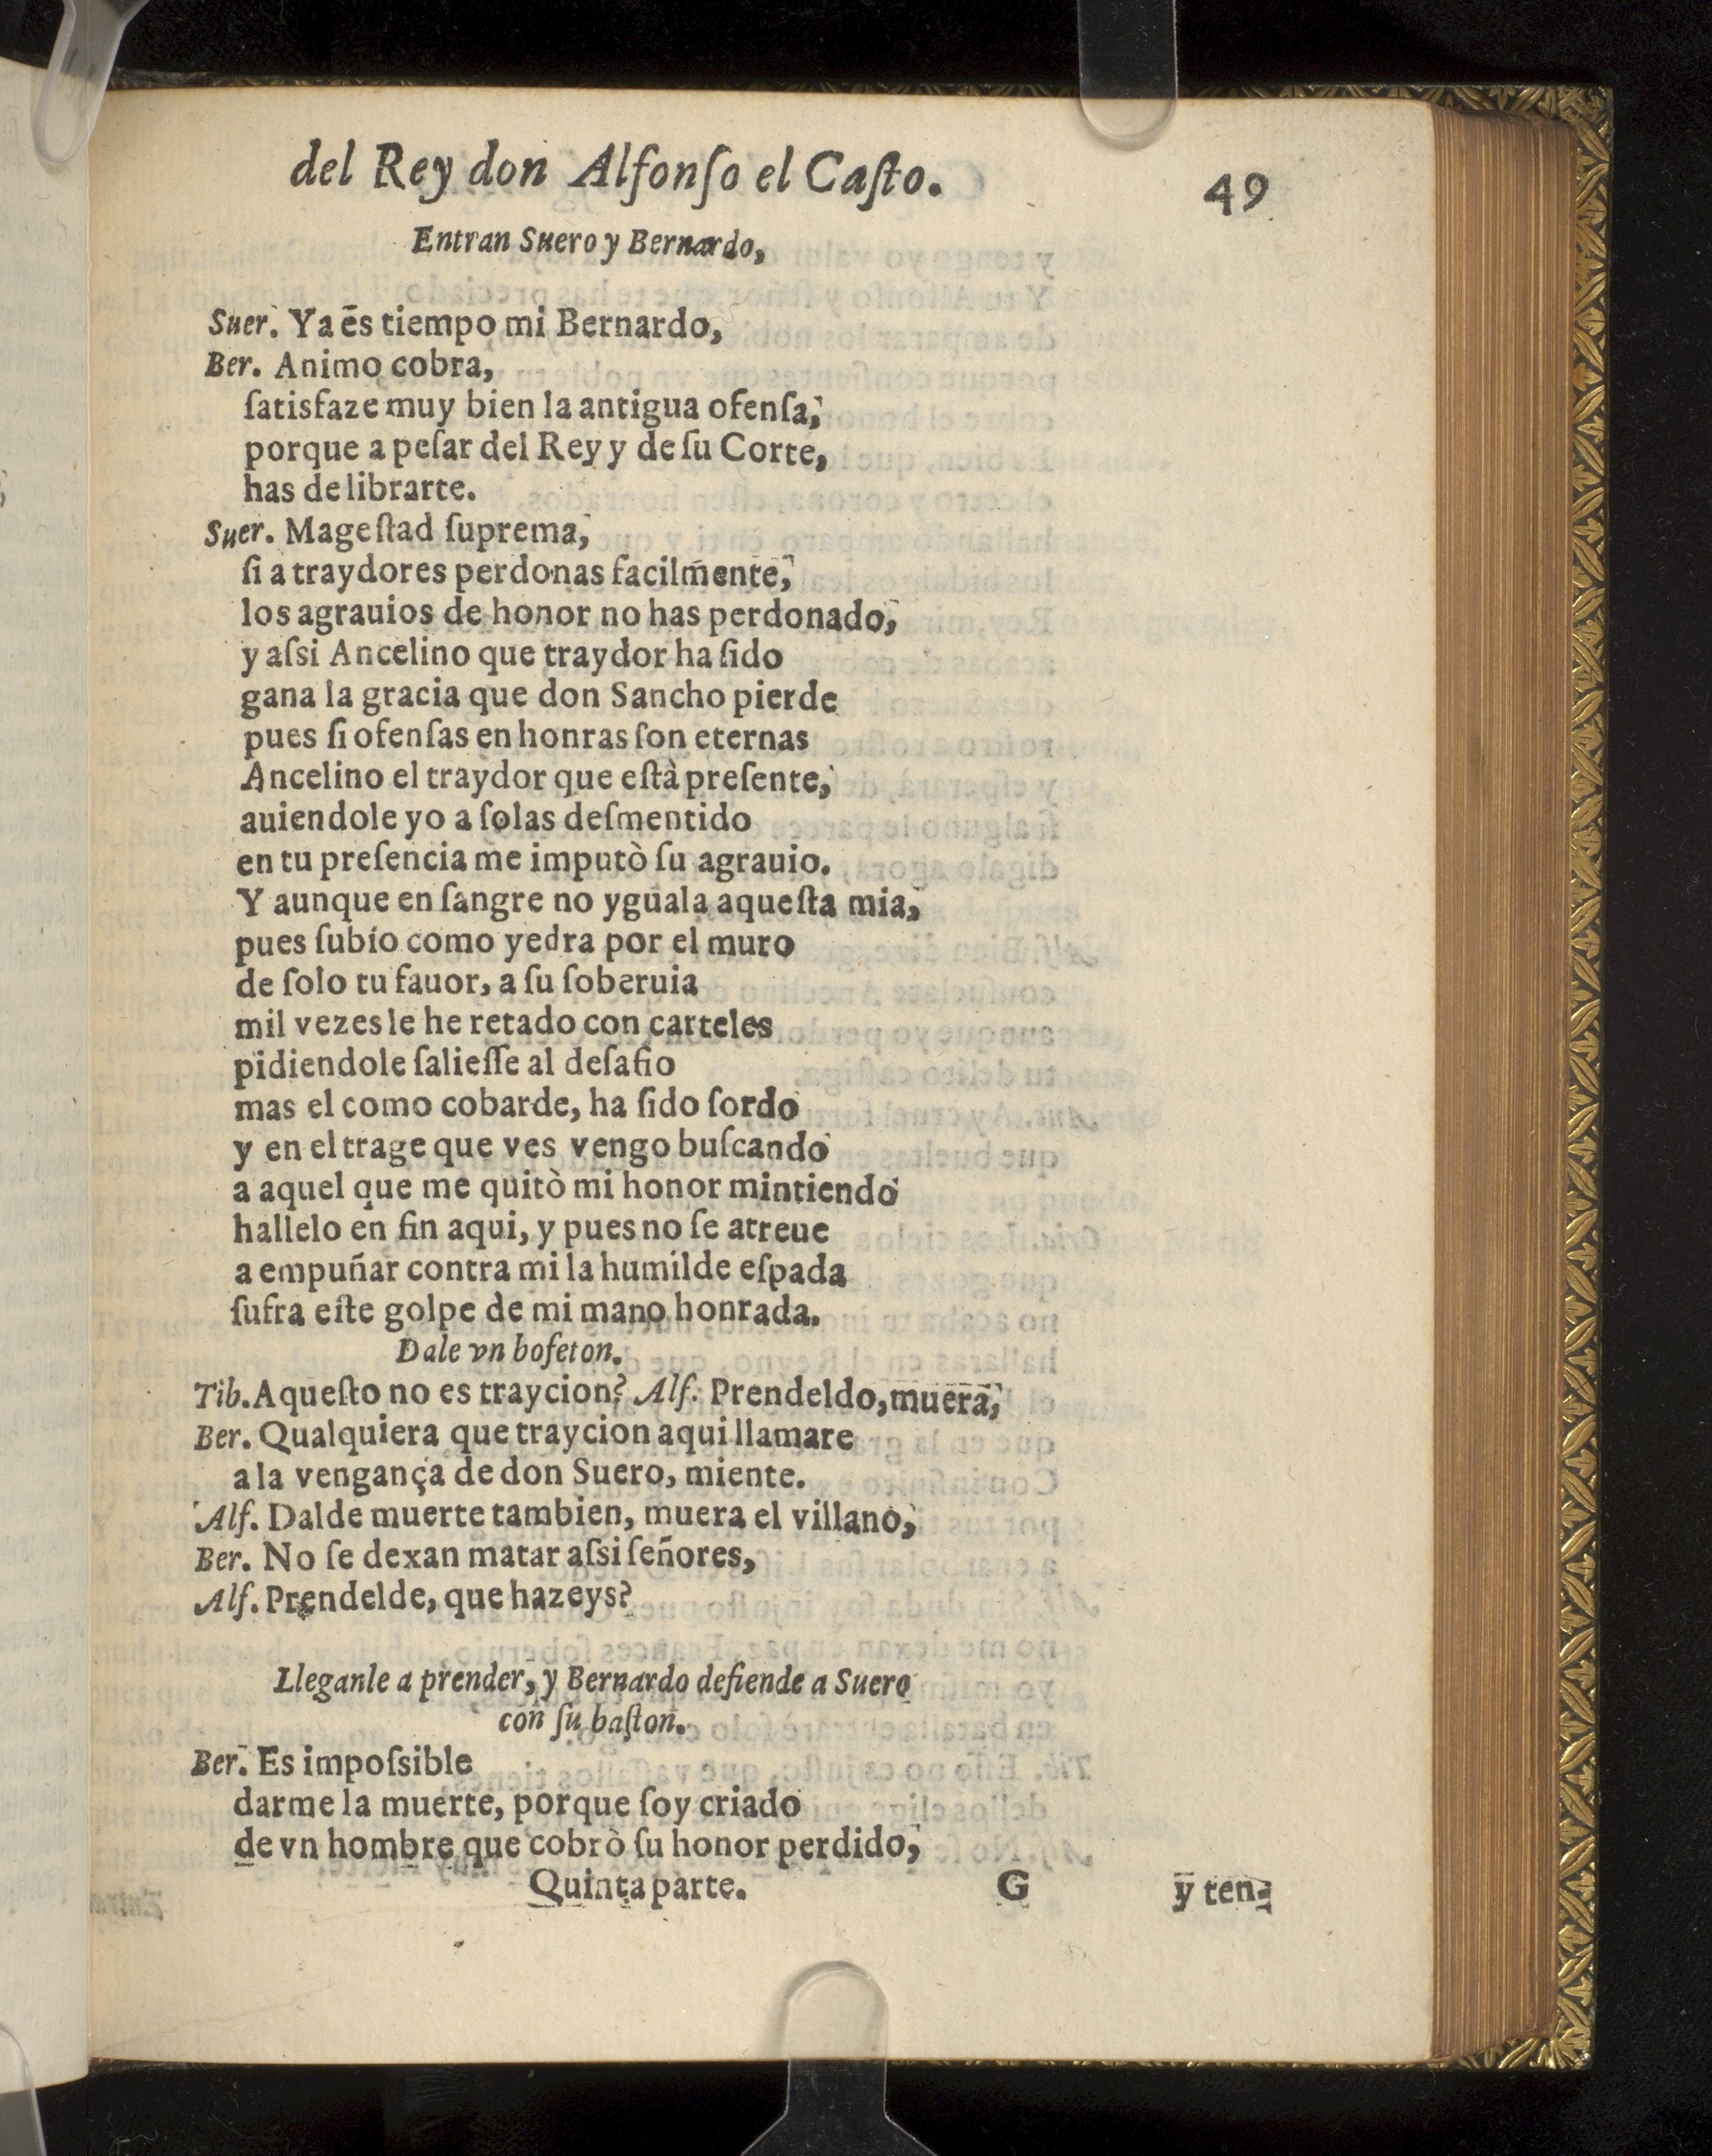 del Rey don Alfonſo el Caſto. 49
Entran Suero y Bernardo,
Suer. Ya es tiempo mi Bernardo,
Ber. Animo cobra,
ſatisfaze muy bien la antigua ofenſa,
porque a peſar del Rey y de ſu Corte,
has de librarte.
Suer. Mageſtad ſuprema,
ſi a traydores perdonas facilmente,
los agrauios de honor no has perdonado,
y aſsi Ancelino que traydor ha ſido
gana la gracia que don Sancho pierde
pues ſi ofenſas en honras ſon eternas
Ancelino el traydor que eſtà preſente,
auiendole yo a ſolas deſmentido
en tu preſencia me imputò ſu agrauio.
Y aunque en ſangre no yguala aqueſta mia,
pues ſubio como yedra por el muro
de ſolo tu fauor, a ſu ſoberuia
mil vezes le he retado con carteles
pidiendole ſalieſſe al deſafio
mas el como cobarde, ha ſido ſordo
y en el trage que ves vengo buſcando
a aquel que me quitò mi honor mintiendo
hallelo en fin aqui, y pues no ſe atreue
a empuñar contra mi la humilde eſpada
ſufra eſte golpe de mi mano honrada.
Dale vn bofeton.
Tib. Aqueſto no es traycion? Alf. Prendeldo, muera,
Ber. Qualquiera que traycion aqui llamare
a la vengança de don Suero, miente.
Alf. Dalde muerte tambien, muera el villano,
Ber. No ſe dexan matar aſsi ſeñores,
Alf. Prendelde, que hazeys?
Lleganle a prender, y Bernardo defiende a Suero
con ſu baſton.
Ber. Es impoſsible
darme la muerte, porque ſoy criado
de vn hombre que cobrò ſu honor perdido,
Quinta parte. G y ten-